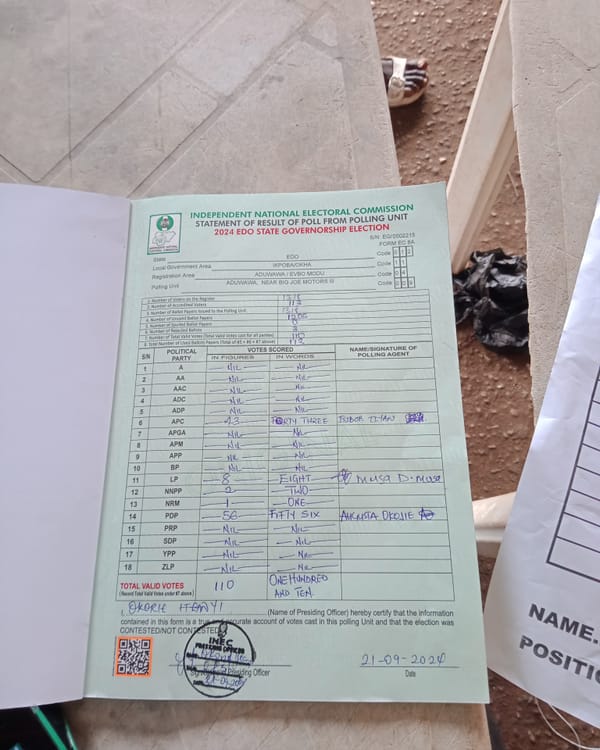 INDEPENDENT NATIONAL ELECTORAL COMMISSION
STATEMENT OF RESULT OF POLL FROM POLLING UNIT
2024 EDO STATE GOVERNORSHIP ELECTION
S/N: EG/0002215
FORM EC 8A
State EDO Code 012
Local Government Area IKPOBA/OKHA Code 11
Registration Area ADUWAWA / EVBO MODU Code 04
Polling Unit ADUWAWA, NEAR BIG JOE MOTORS III Code 009
1. Number of Voters on the Register 1318
2. Number of Accredited Voters 113
3. Number of Ballot Papers Issued to the Polling Unit 1318
4. Number of Unused Ballot Papers 1205
5. Number of Spoiled Ballot Papers
6. Number of Rejected Ballots 3
7. Number of Total Valid Votes (Total Valid Votes cast for all parties) 110
8. Total Number of Used Ballot Papers (Total of #5 + #6 + #7 above) 113
S/N POLITICAL PARTY VOTES SCORED NAME/SIGNATURE OF POLLING AGENT
IN FIGURES IN WORDS
1 A NIL NIL
2 AA NIL NIL
3 AAC NIL NIL
4 ADC NIL NIL
5 ADP NIL NIL
6 APC 43 FORTY THREE
7 APGA NIL NIL
8 APM NIL NIL
9 APP NIL NIL
10 BP NIL NIL
11 LP 8 EIGHT Musa D. Musa
12 NNPP 2 TWO
13 NRM 1 ONE
14 PDP 56 FIFTY SIX AUGUSTA OKOJIE
15 PRP NIL NIL
16 SDP NIL NIL
17 YPP NIL NIL
18 ZLP NIL NIL
TOTAL VALID VOTES 110 ONE HUNDRED AND TEN
(Record Total Valid Votes under #7 above)
I, OKORIE (Name of Presiding Officer) hereby certify that the information
contained in this form is a true and accurate account of votes cast in this polling Unit and that the election was
CONTESTED/NOT CONTESTED
INEC
PRESIDING OFFICER
Signature Presiding Officer
21-09-2024
Date
NAME.
POSITIO